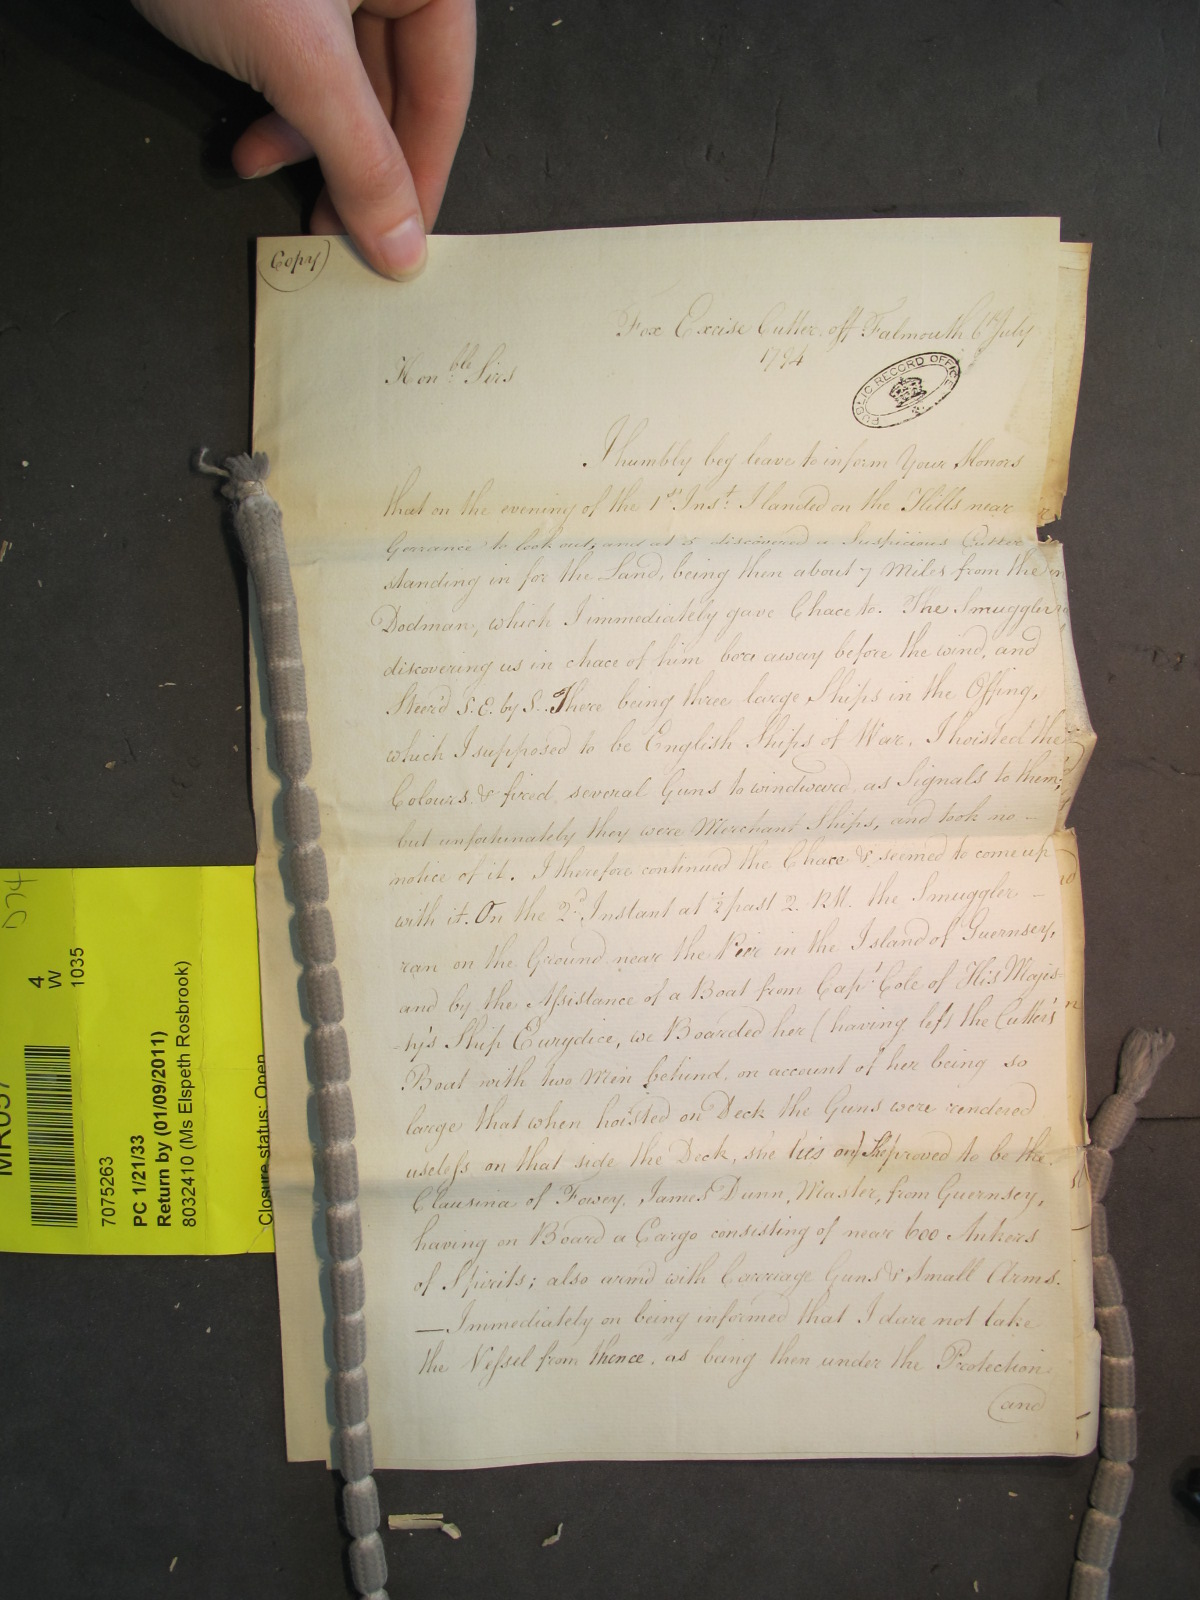 Copy
Fox Excise Cutter off Falmouth 6th July
1794
Honble Sirs
PUBLIC RECORD OFFICE
I humbly beg leave to inform Your Honors
that on the evening of the 1st Inst. I landed on the Hills near
Gerrance to look out, and at 5 discovered a Suspicious Cutter
standing in for the Land, being then about 7 Miles from the
Dodman, which I immediately gave Chace to. The Smuggler
discovering us in chace of him bore away before the wind, and
Steer'd S.E. by S. There being three large Ships in the Offing,
which I supposed to be English Ships of War, I hoisted the
Colours & fired several Guns to windward, as Signals to them;
but unfortunately they were Merchant Ships, and took no —
notice of it. I therefore continued the Chace & seemed to come up
with it. On the 2d Instant at ½ past 2. P.M. the Smuggler —
ran on the Ground near the Pier in the Island of Guernsey,
and by the Assistance of a Boat from Capt Cole of His Majes-
-ty's Ship Eurydice, we Boarded her (having left the Cutter's
Boat with two Men behind, on account of her being so
large that when hoisted on Deck the Guns were rendered
useless on that side the Deck, she lies on) She proved to be the
Clausina of Fowey, James Dunn, Master, from Guernsey,
having on Board a Cargo consisting of near 600 Ankers
of Spirits; also arm'd with Carriage Guns & Small Arms.
— Immediately on being informed that I dare not take
the Vessel from thence, as being then under the Protection
(and
D74
4
W
1035
7075263
PC 1/21/33
Return by (01/09/2011)
8032410 (Ms Elspeth Rosbrook)
Closure status: Open